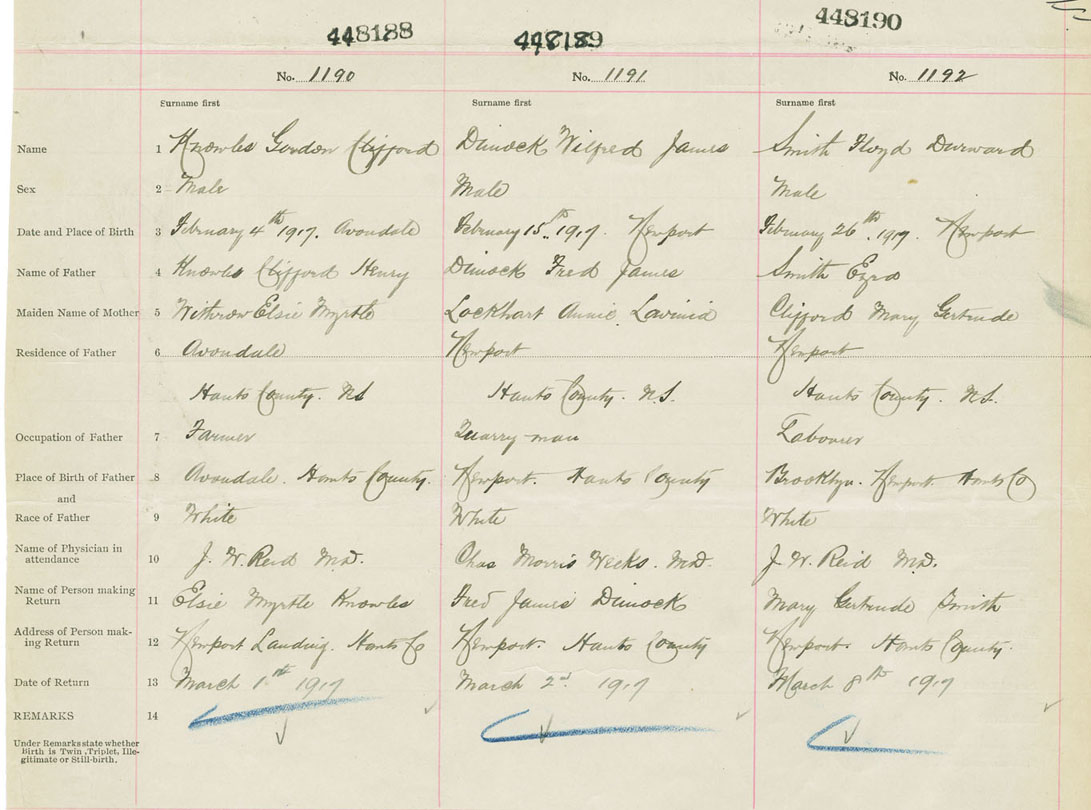 448188 448189 448190
No. 1190 No. 1191 No. 1192
Surname first Surname first Surname first
Name 1 Knowles Gordon Clifford Dimock Wilfred James Smith Floyd Durward
Sex 2 Male Male Male
Date and Place of Birth 3 February 4th 1917. Avondale February 15th 1917. Newport February 26th 1917. Newport
Name of Father 4 Knowles Clifford Henry Dimock Fred James Smith Ezra
Maiden Name of Mother 5 Withrow Elsie Myrtle Lockhart Annie Lavinia Clifford Mary Gertrude
Residence of Father 6 Avondale Newport Newport
Hants County. NS Hants County. N.S. Hants County. N.S.
Occupation of Father 7 Farmer Quarry man Labourer
Place of Birth of Father 8 Avondale. Hants County. Newport. Hants County Brooklyn. Newport Hants Co
and
Race of Father 9 White White White
Name of Physician in
attendance 10 J. W. Reid M.D. Chas Morris Weeks. M.D. J. W. Reid M.D.
Name of Person making
Return 11 Elsie Myrtle Knowles Fred James Dimock Mary Gertrude Smith
Address of Person mak-
ing Return 12 Newport Landing. Hants Co Newport. Hants County Newport. Hants County.
Date of Return 13 March 1th 1917 March 2nd 1917 March 8th 1917
REMARKS 14
Under Remarks state whether
Birth is Twin, Triplet, Ille-
gitimate or Still-birth.